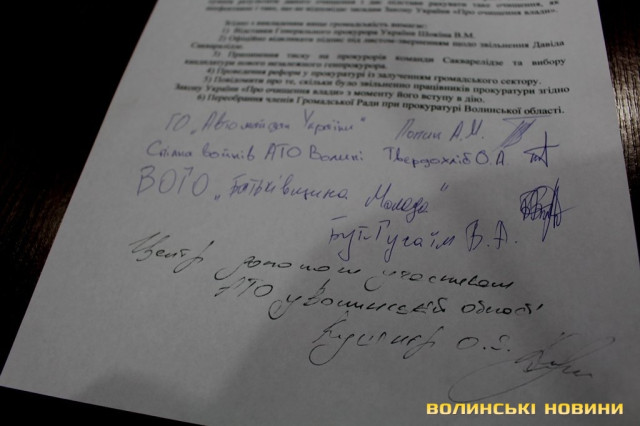 Закону України «Про очищення влади».
З огляду на викладене вище громадськість вимагає:
1) Відставки Генерального прокурора України Шокіна В.М.
2) Офіційно відкликати підпис під листом-зверненням щодо звільнення Давіда
Сакварелідзе.
3) Припинення тиску на прокурорів команди Сакварелідзе та вибору
кандидатури нового незалежного генпрокурора.
4) Проведення реформ у прокуратурі із залученням громадського сектору.
5) Повідомити про те, скільки було звільнено працівників прокуратури згідно
Закону України «Про очищення влади» з моменту його вступу в дію.
6) Переобрання членів Громадської Ради при прокуратурі Волинської області.
ГО „Автомайдан України" А.М.
Спілка воїнів АТО Волині Твердохліб О.А
ВОГО „Батьківщина Молода"
Бут-Гусаїм В.А.
Центр допомоги учасникам
АТО у Волинській області
Кушнір О.
ВОЛИНСЬКІ НОВИНИ